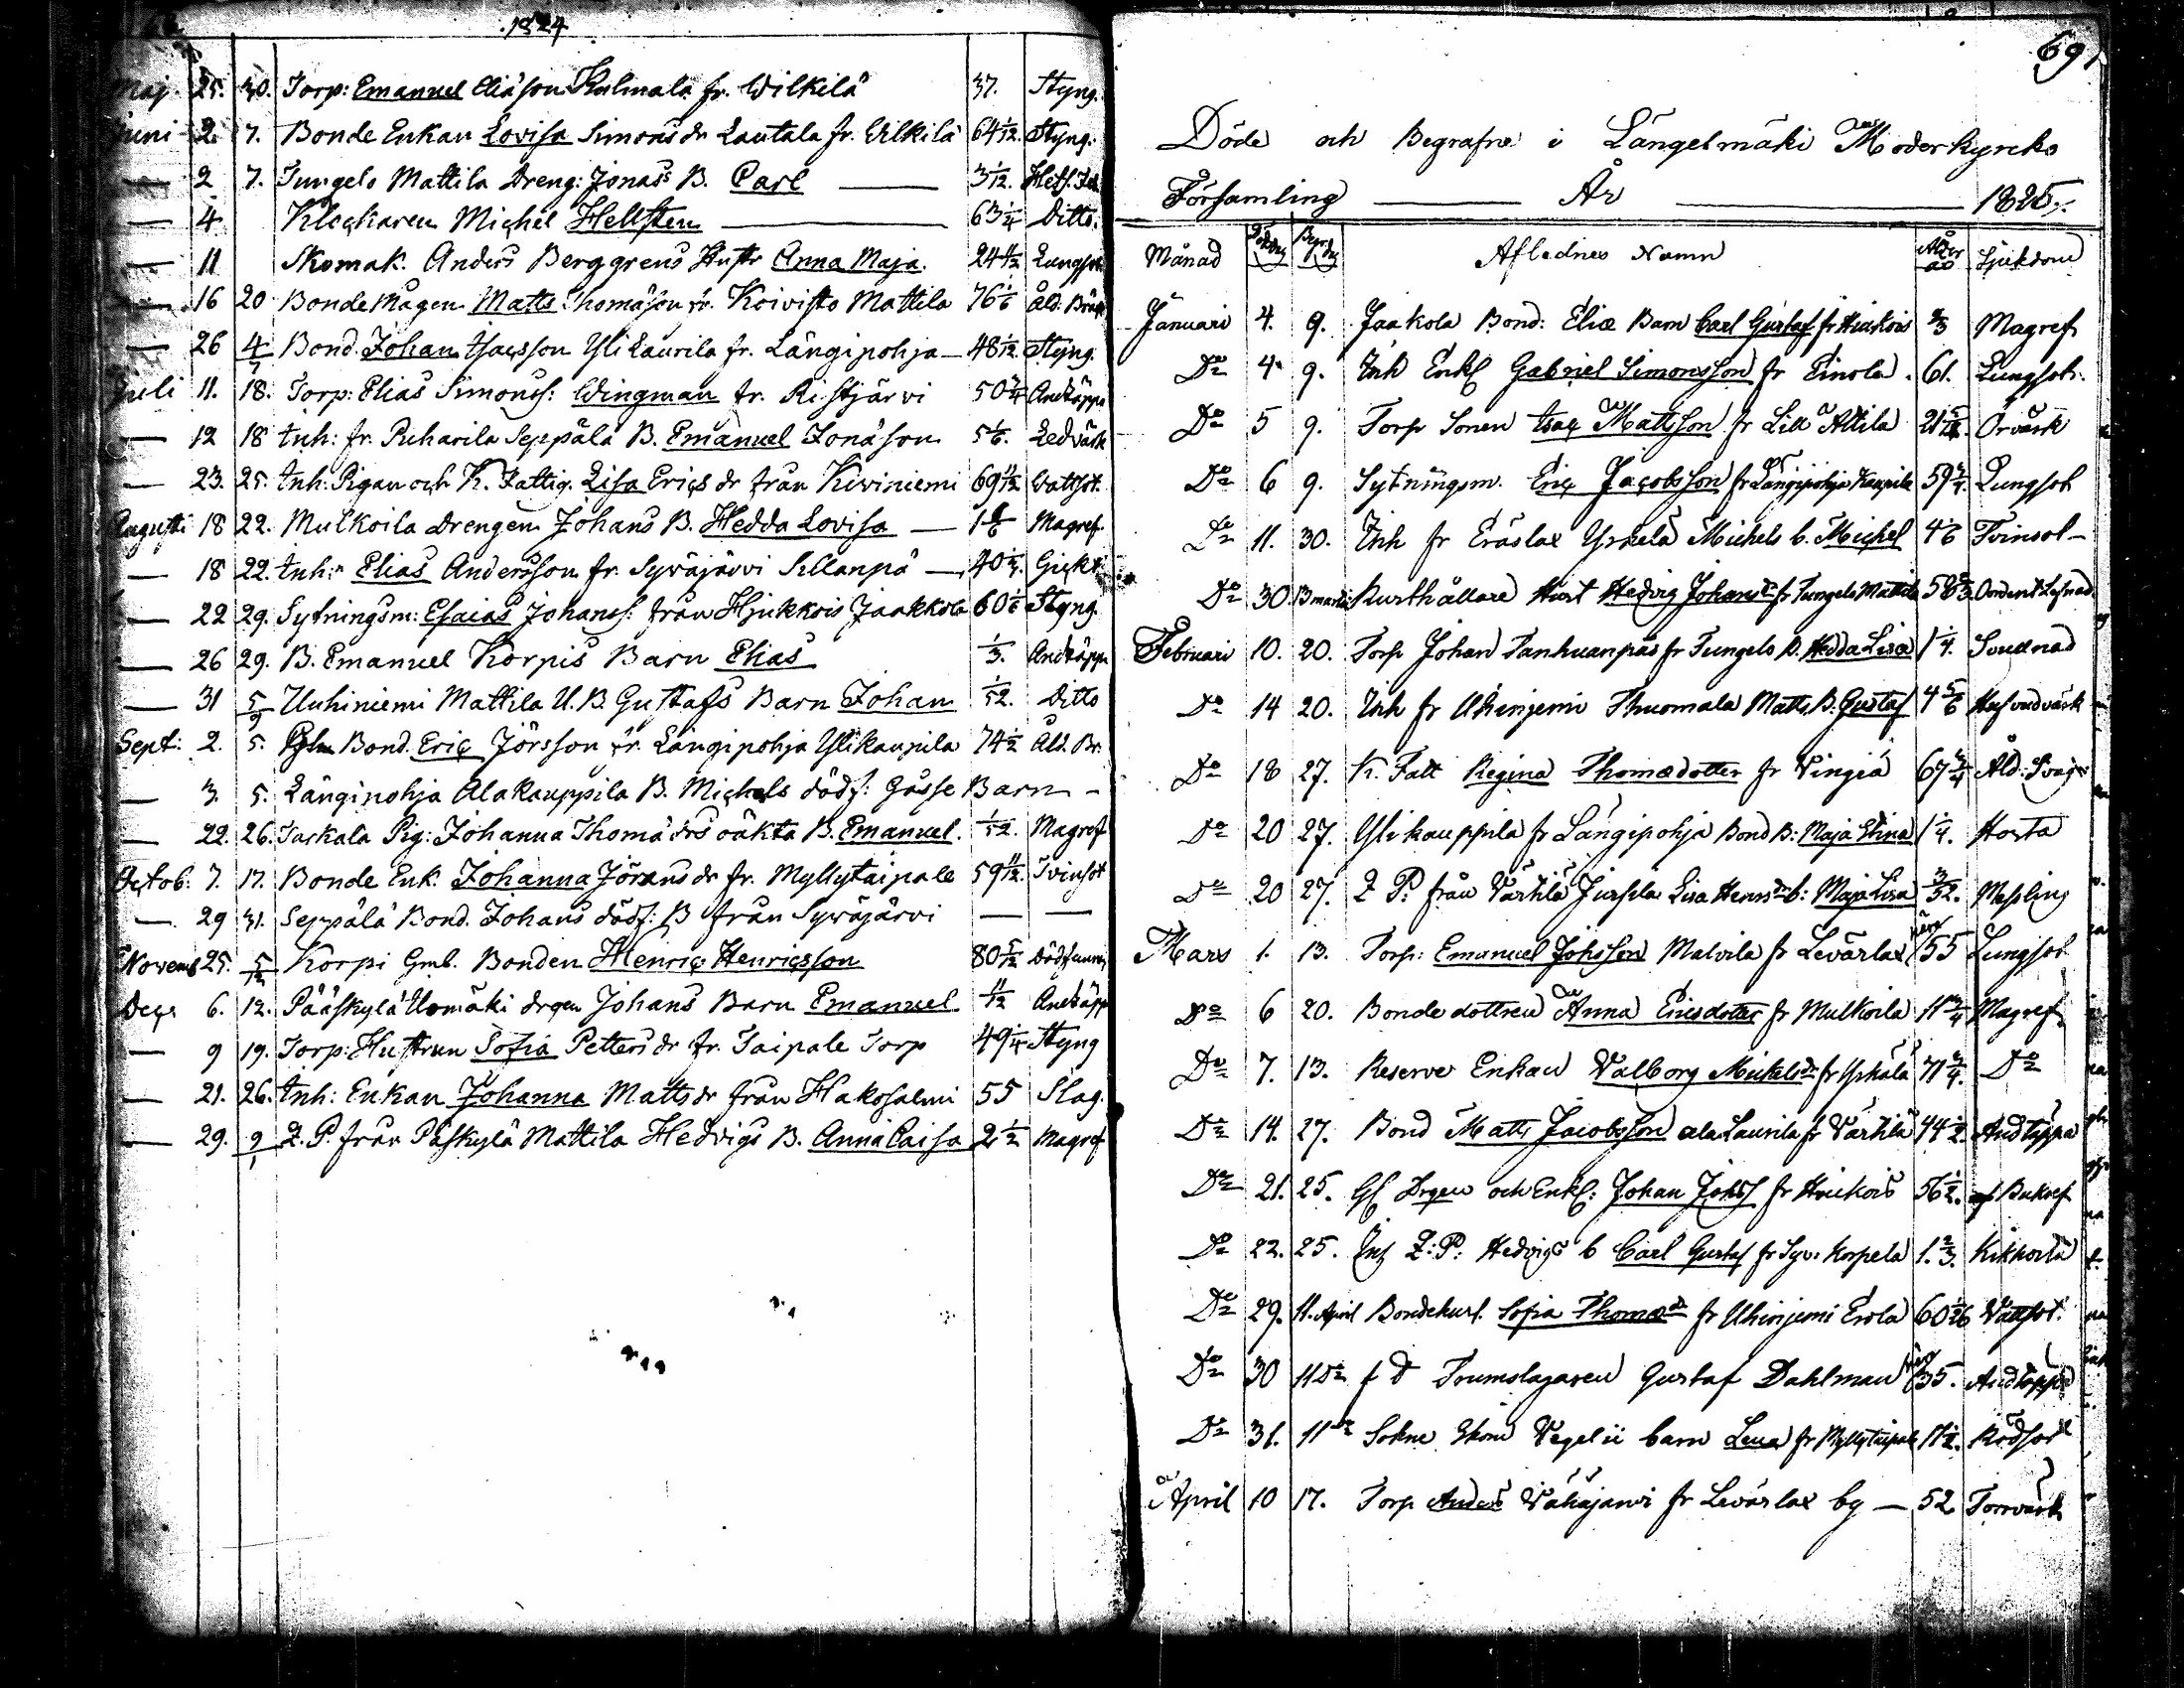 1824
Maj. 25. 30. Torp: Emanuel Eliäson Kulmala fr. Wilkilä 37. Styng.
Juni 2. 7. Bonde Enkan Lovisa Simons dr Lautala fr. Wilkilä 64 1/12. Styng.
— 2 7. Jungelo Mattila Dreng: Jonas's B. Carl — 3 1/12.
— 4 Klockaren Michel Hellsten — 63 1/4 Ditto.
— 11 Skomak. Anders Berggrens Hustr Anna Maja. 24 Lungsot
— 16 20 Bonde Mågen Matts Thomäson fr. Koivisto Mattila 76 1/6 Åld. Bräck
— 26 4/7 Bond. Johan Isacsson Yli Laurila fr. Längipohja — 48 1/12. Styng.
Juli 11. 18. Torp: Elias Simonss: Wingman fr. Ristjärvi 50 Andtäppa
— 12 18 Inh: fr. Puharila Seppälä B. Emanuel Jonäson 5 1/6. Ledvärk
— 23. 25. Inh: Pigan och K. Fattig. Lisa Erics dr från Kiviniemi 69 Wattsot.
Augusti 18 22. Mulkoila Drengen Johans B. Hedda Lovisa — 1 Magref.
— 18 22. Inh: Elias Andersson fr. Syväjärvi Sillanpä — 40 Gickt
— 22 29. Sytningsm: Esaias Johanss: från Hjukkois Jaakkola 60 1/6 Styng.
— 26 29. B. Emanuel Korpis Barn Elias 1/3. Andtäppa
— 31 5/9 Uuhiniemi Mattila U. B. Gustafs Barn Johan 1/52. Ditto
Sept: 2. 5. Bond. Eric Jörsson fr. Längipohja Ylikaupila 74 1/2 Åld. Br.
— 3. 5. Längipohja Alakauppila B. Michels dödf: Gosse Barn —
— 22. 26. Jaskala Pig: Johanna Thomä drs oäkta B. Emanuel. 1/52. Magref
Octob: 7. 17. Bonde Enk. Johanna Jörans dr fr. Myllytaipale 59 11/12. Tvinsot
— 29 31. Seppälä Bond. Johans dödf: B från Syväjärvi — —
Novemb 25. 5/12 Korpi Gmb. Bonden Henric Henricsson 80
Decr 6. 12. Pääskylä Uomäki drgen Johans Barn Emanuel 11/12 Andtäpp
— 9 19. Torp: Hustrun Sofia Petters dr fr. Taipale Torp 49 1/4 Styng
— 21. 26. Inh: Enkan Johanna Matts dr från Hakosalmi 55 Slag.
— 29. 2/1 Q. P. från Päskylä Mattila Hedvigs B. Anna Caisa 2 1/2 Magref
69
Döde och Begrafne i Längelmäki Moderkyrcko
Församling — År — 1825.
Månad Död dag Begr. dag Aflednes Namn Ålder Sjukdom
Januari 4. 9. Jaakola Bond: Eliæ Barn Carl Gustaf fr Hiukois 2/3 Magref
Do 4 9. Inh Enkl Gabriel Simonsson fr Einola. 61. Lungsot.
Do 5 9. Torp Sonen Isac Mattsson fr Lill Attila 21 Örvärk
Do 6 9. Sytningsm. Eric Jacobsson fr Längipohja Kaupila 59 3/4. Lungsot
Do 11. 30. Inh fr Eräslax Yrkelä Michels b. Michel 4 1/6 Tvinsot —
Do 30 13 martii Rusthållare Hust Hedvig Johansdr fr Jungelo Mattila 58 2/3
Februari 10. 20. Torp Johan Tanhuanpäs fr Jungelo B. Hedda Lisa 1 1/4.
Do 14 20. Inh fr Uhinjemi Thuomala Matts B. Gustaf 4 5/6 Hufvudvärk
Do 18 27. K. Fatt Regina Thomædotter fr Vingiä 67 3/4 Åld:
Do 20 27. Ylikauppila fr Längipohja Bond B: Maja Stina 1 1/4. Hosta
Do 20 27. Q P: från Värkilä Jussila Lisa Henrsdr b: Maja Lisa 3/52. Messling
Mars 1. 13. Torp: Emanuel Johsson Matvila fr Levärlax 55 Lungsot
Do 6 20. Bondedottren Anna Ericsdotter fr Mulkoila 11 3/4 Magref
Do 7. 13. Reserve Enkan Valborg Mickelsdr fr Yskälä 71 3/4. Do
Do 14. 27. Bond Matts Jacobsson ala Laurila fr Värkilä 44 1/2. Andtäppa
Do 21. 25. Gl Drgen och Enkl: Johan Johss fr Hiukois 56 1/2. af Bukref
Do 22. 25. Inh Q: P: Hedvigs b Carl Gustaf fr Syv: Korpela 1. 2/3. Kikhosta
Do 29. 11. April Bondehust. Sofia Thomædr fr Uhinjemi Erola 60 Vattsot.
Do 30 11 Do f d Trumslagaren Gustaf Dahlman 35. Andtäppa
Do 31. 11 Do Sokne Skom Vegelii barn Lena fr Myllytaipale 11 1/2. Rödsot
April 10 17. Torp Anders Vähäjärvi fr Levärlax by — 52 Torrvärk